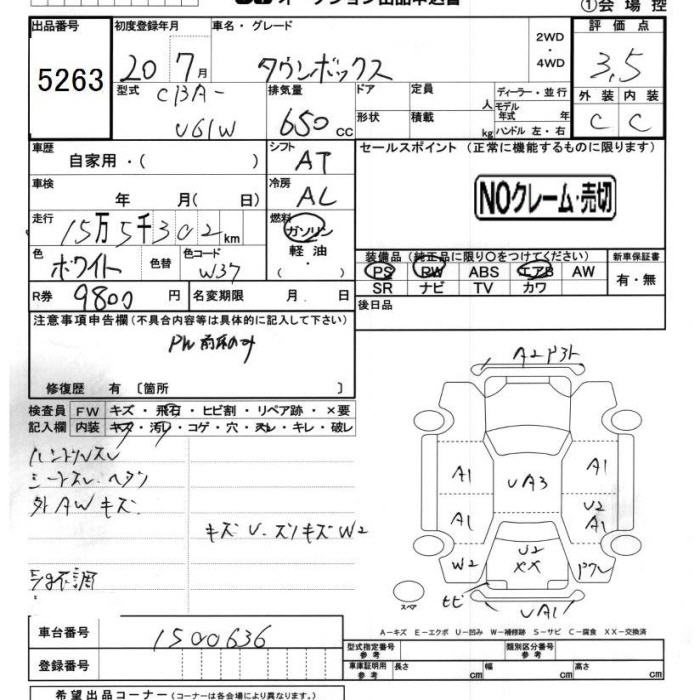 オークション出品申込書
①会場控
出品番号
5263
初度登録年月
20 7月
車名・グレード
タウンボックス
2WD
・
4WD
評価点
3.5
型式
CBA-
U61W
排気量
650cc
ドア
形状
定員 人
積載 kg
ディーラー・並行
モデル年式 年
ハンドル 左・右
外装 内装
C C
車歴
自家用・( )
シフト
AT
セールスポイント (正常に機能するものに限ります)
NOクレーム・売切
車検
年 月( 日)
冷房
AL
走行
15万5千302km
燃料
ガソリン
軽油
・
( )
色
ホワイト
色替
色コード
W37
装備品 (純正品に限り○をつけてください)
新車保証書
PS PW ABS エアB AW
SR ナビ TV カワ
有・無
R券 9800円
名変期限 月 日
後日品
注意事項申告欄(不具合内容等は具体的に記入して下さい)
PW前席のみ
修復歴 有 〔箇所 〕
検査員記入欄
FW キズ・飛石・ヒビ割・リペア跡・×要
内装 キズ・汚レ・コゲ・穴・スレ・キレ・破レ
ハンドルスレ
シートスレ・ヘタリ
外AWキズ
キズ U.スリキズ W2
不調
A2 P3ト
A1
A1
UA3
A1
U2
A1
W2
U2
XX
ヒビ
UA1
スペア
A-キズ E-エクボ U-凹み W-補修跡 S-サビ C-腐食 XX-交換済
車台番号
1500636
登録番号
型式指定番号
参考
類別区分番号
参考
車庫証明用
参考
長さ cm 幅 cm 高さ cm
希望出品コーナー(コーナーは各会場により異なります。)